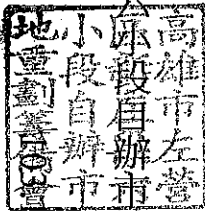 高雄市左營
段自辦市
小段自辦市
地重劃籌會